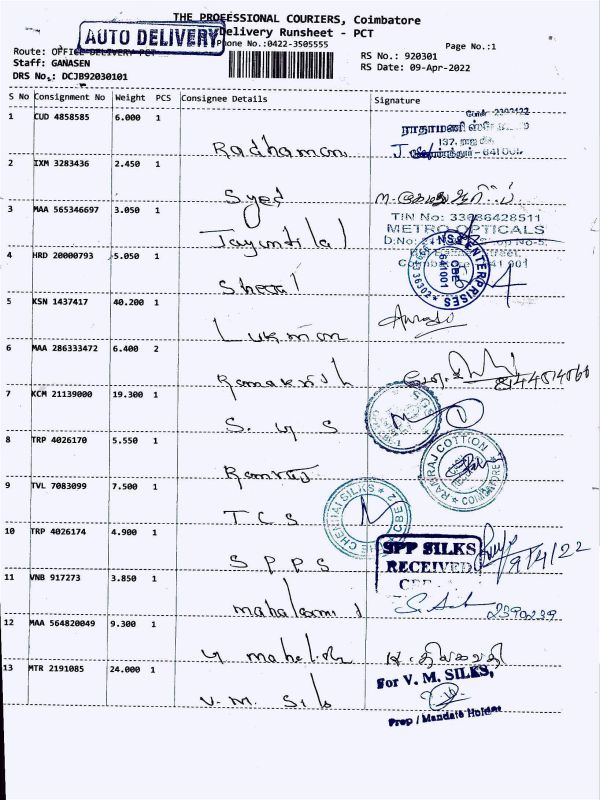 THE PROFESSIONAL COURIERS, Coimbatore
AUTO DELIVERY Delivery Runsheet - PCT
Phone No.:0422-3505555
Page No.:1
Route: OFFICE DELIVERY PCT
RS No.: 920301
Staff: GANASEN
RS Date: 09-Apr-2022
DRS No.: DCJB92030101
S No Consignment No Weight PCS Consignee Details Signature
1 CUD 4858585 6.000 1
ராதாமணி
137, ராஜ வீதி
Radhamani
641001
2 IXM 3283436 2.450 1
Syed
3 MAA 565346697 3.050 1
TIN No: 33086428511
METRO OPTICALS
D.No: Shop No-5,
Jayantilal
Street,
4 HRD 20000793 5.050 1
ENTERPRISES
CBE
641001
Sheetal
5 KSN 1437417 40.200 1
Lukman
6 MAA 286333472 6.400 2
Ramakrish
7 KCM 21139000 19.300 1
S. y S
8 TRP 4026170 5.550 1
RAMRAJ COTTON
COIMBATORE
Ramraj
9 TVL 7083099 7.500 1
THE CHENNAI SILKS
CBE 2
TCS
10 TRP 4026174 4.900 1
SPP SILKS
RECEIVED
9/4/22
SPPS
11 VNB 917273 3.850 1
mahalaxmi
2390239
12 MAA 564820049 9.300 1
13 MTR 2191085 24.000 1
For V. M. SILKS,
V.M. Silks
Prop / Mandate Holder